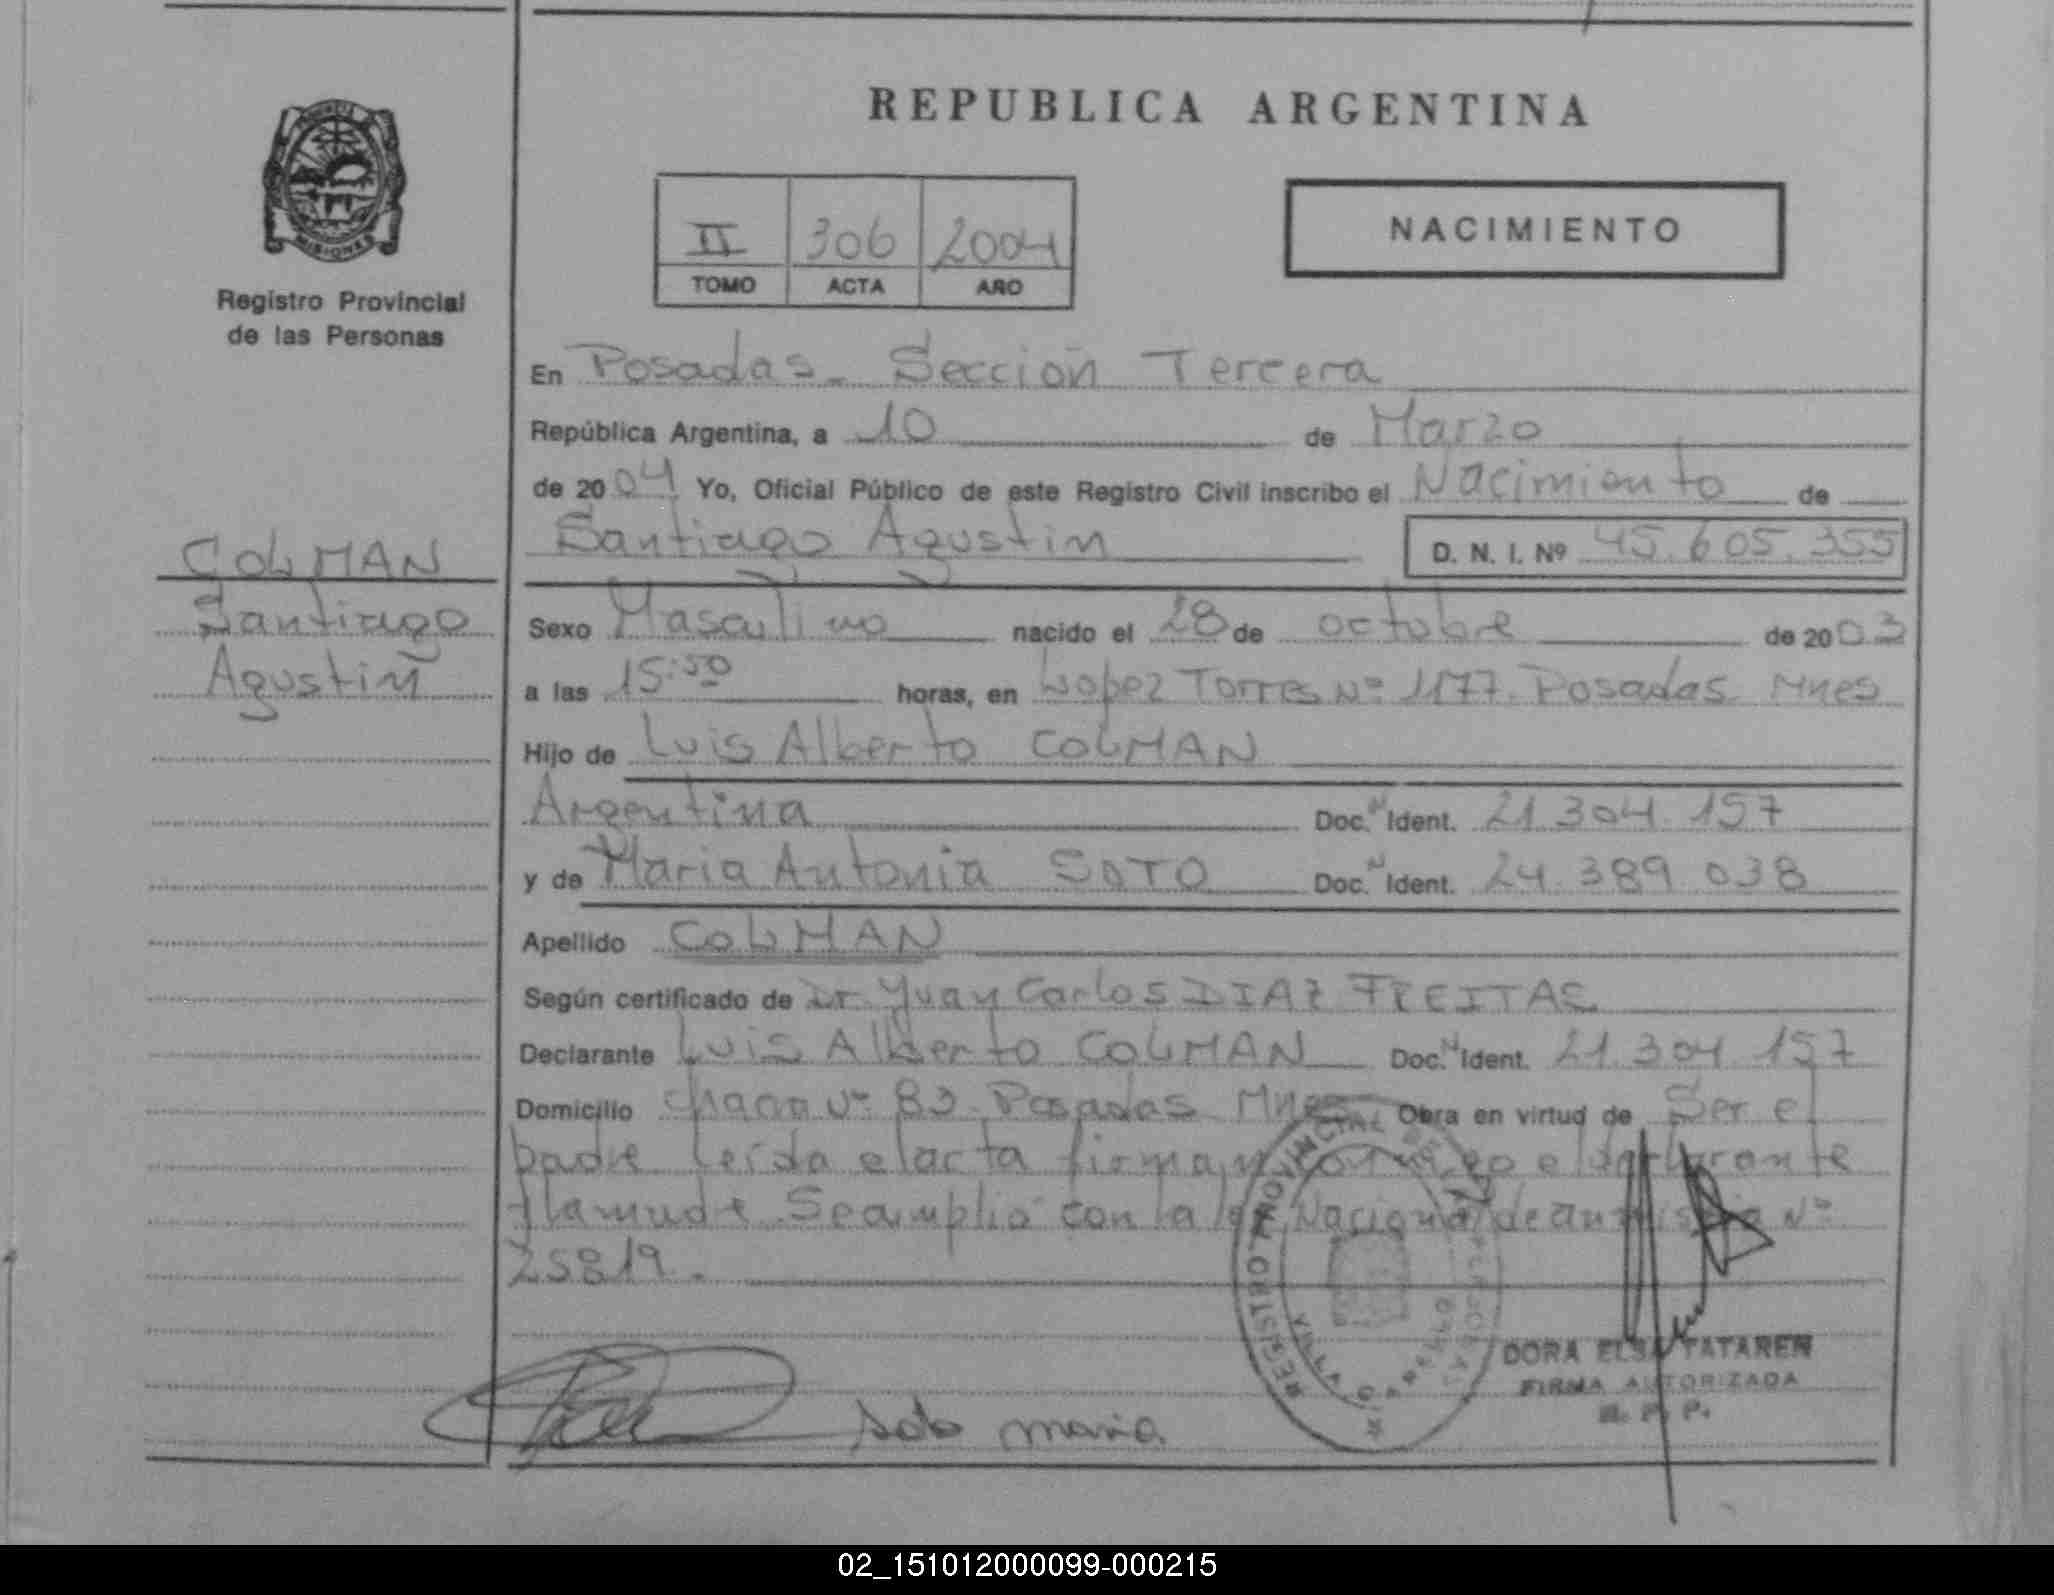 REPUBLICA ARGENTINA
MISIONES
Registro Provincial
de las Personas
II 306 2004
TOMO ACTA AÑO
NACIMIENTO
En Posadas - Sección Tercera
República Argentina, a 10 de Marzo
de 2004 Yo, Oficial Público de este Registro Civil inscribo el Nacimiento de
Santiago Agustin D. N. I. Nº 45.605.355
COLMAN
Santiago
Agustin
Sexo Masculino nacido el 28 de octubre de 2003
a las 15:50 horas, en Lopez Torres Nº 1177. Posadas Mnes
Hijo de Luis Alberto COLMAN
Argentina Doc. N Ident. 21.304.157
y de Maria Antonia SOTO Doc. N Ident. 24.389.038
Apellido COLMAN
Según certificado de Dr. Yuan Carlos DIAZ FREITAS
Declarante Luis Alberto COLMAN Doc. N Ident. 21.304.157
Domicilio Chacra Nº 83. Posadas Mnes Obra en virtud de Ser el
padre Leída el acta firman conmigo el declarante
Se amplió con la ley Nacional de amnistia Nº
25819.
REGISTRO PROVINCIAL DE LAS PERSONAS
VILLA
DORA ELSA TATAREN
FIRMA AUTORIZADA
R. P. P.
Soto maria
02_151012000099-000215